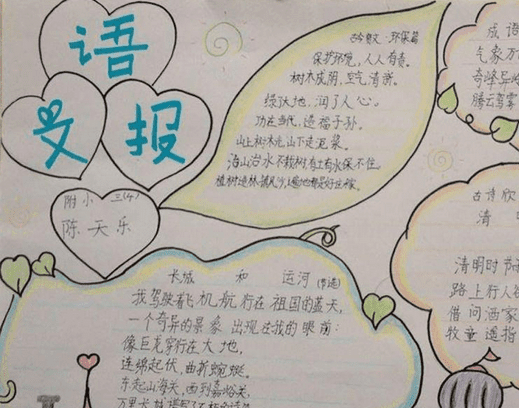 语
文
报
附小 三(4)
陈天乐
古今贤文·环保篇
保护环境，人人有责。
树木成阴，空气清新。
绿沃大地，润了人心。
功在当代，造福子孙。
山上树木光，山下走泥浆。
治山治水不栽树，有土有水保不住。
植树造林，
成语
气象万
奇峰异
腾云驾雾
古诗欣
清
清明时节雨
路上行人
借问酒家
牧童遥指
长城 和 运河(节选)
我驾驶着飞机航行在祖国的蓝天，
一个奇异的景象出现在我的眼前：
像巨龙穿行在大地，
连绵起伏，曲折蜿蜒。
东起山海关，西到嘉峪关，
万里长城